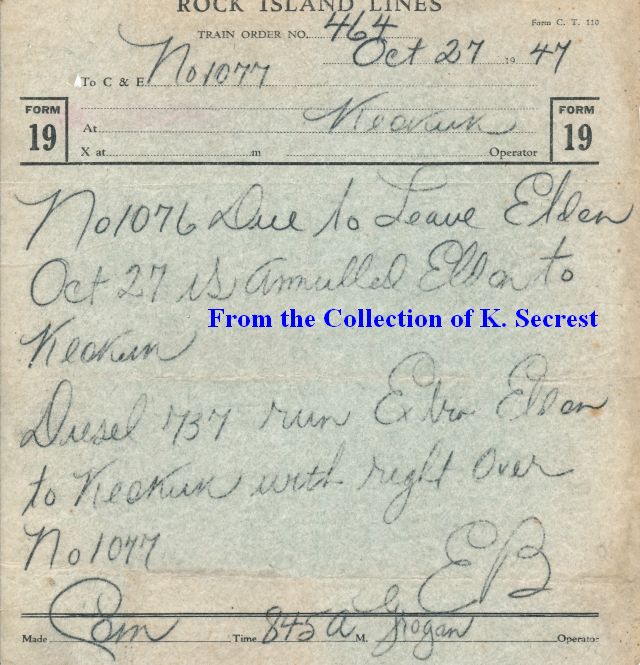 ROCK ISLAND LINES
Form C. T. 110
TRAIN ORDER NO. 464
Oct 27 19 47
To C & E No 1077
FORM 19
At Keokuk
X at m Operator
FORM 19
No 1076 Due to Leave Eldon
Oct 27 is annulled Eldon to
Keokuk
From the Collection of K. Secrest
Diesel 737 run Extra Eldon
to Keokuk with right over
No 1077
EB
Made Com Time 845 A M. Grogan Operator